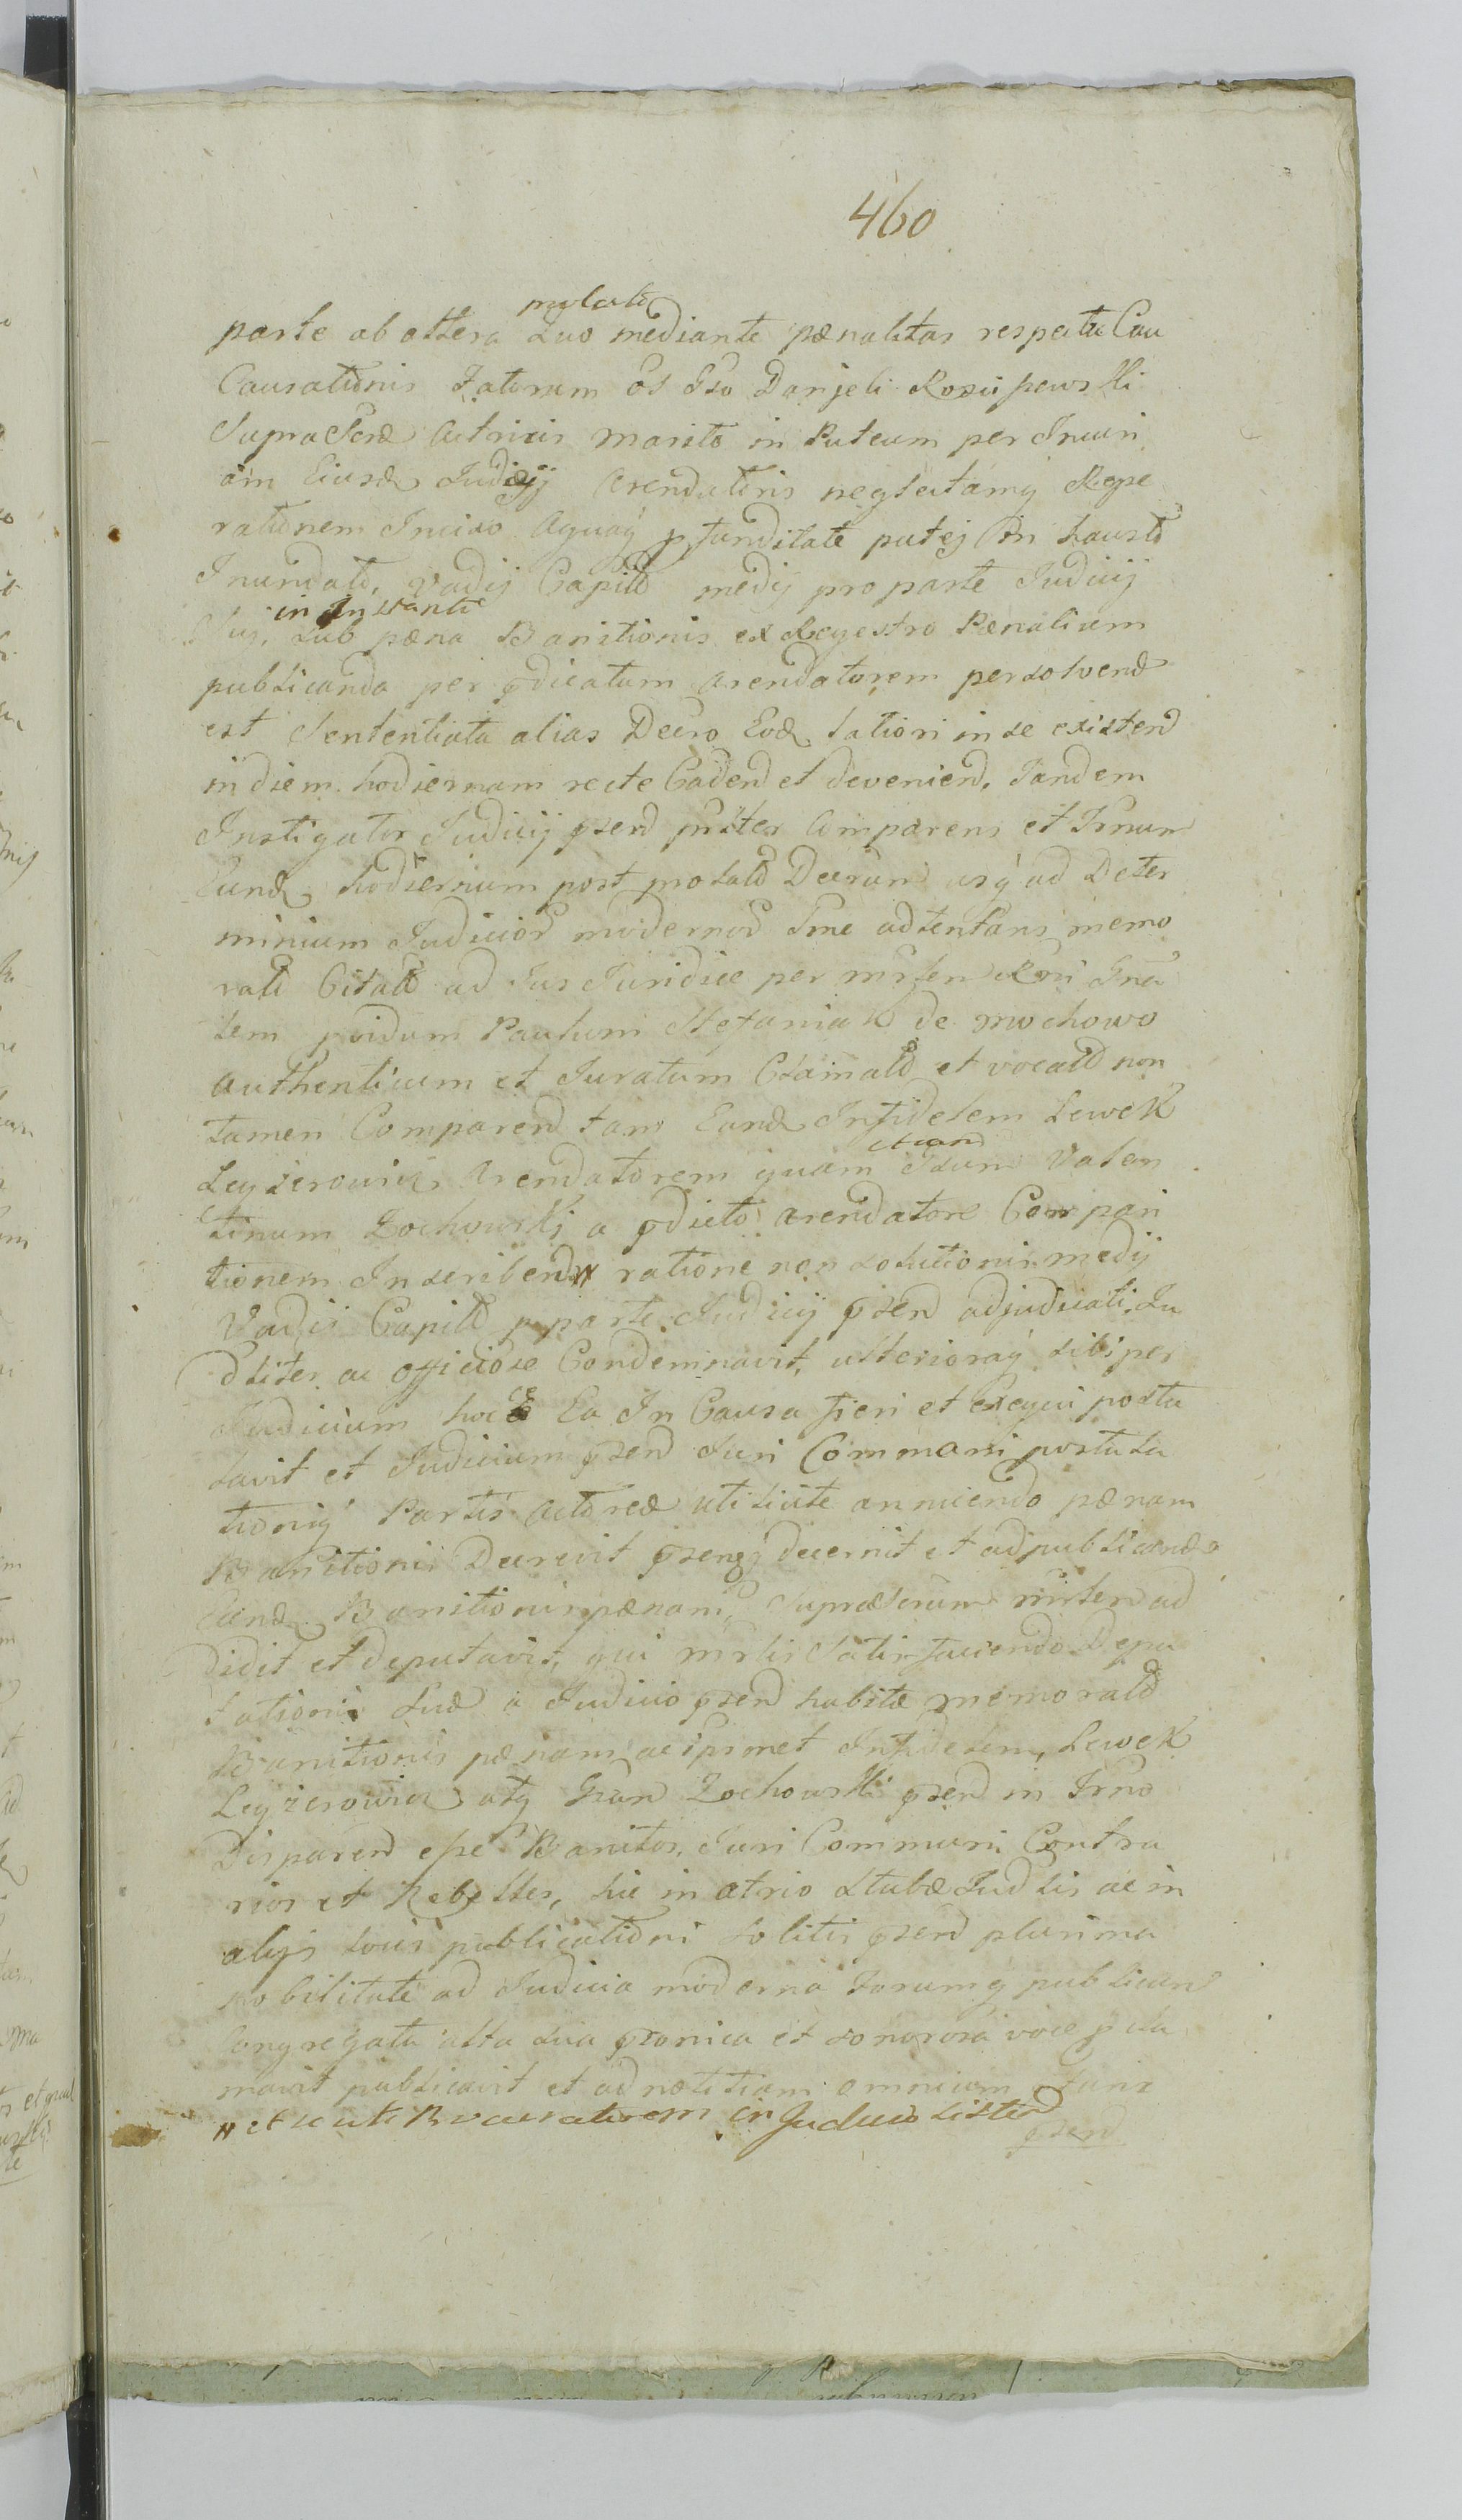 460
prolato
parte ab altera Luo mediante pænalitas respectu Cau
Causationis Fatorum oĩ Gso Danjeli Rosciszewski
Supra Scrõ Actricis marito in Puteum per Incuri
am Eiusd Judicij Arendatoris neglectamq Repe
rationem Inciso Aquaq pfunditate putej in hausto
Inundato, Vadij Capitlõ medij pro parte Judicij
in Instanti
sub pæna Banitionis ex Regestro Pænalium
publicanda per pdicatum arendatorem persolvend
est Sententiata alias Decro Eod latiori in se existend
in diem hodiernam recte Cadend et deveniend, Tandem
Instigator Judicij psend pnliter Comparens et Trnum
Eund hodiernum post prolatõ Decrum usq ad Deter
minium Judicior modernor Sme adtentans memo
rati Citatõ ad Jus Juridice per mrlem Rni Gna
lem pvidum Paulum Stefaniak de Mochowo
Authenticum et Juratum Clamatõ et vocatõ non
tamen Comparend tam Eund Infidelem Lewek
etiam
Leyzerowicz Arendatorem quam Gsum Valen
tinum Zochowskj a pdicto arendatore Compari
tionem Inscribend # ratione non solutionis medij
Vadij Capitlõ p parte Judicij psend adjudicati, Ju
dliter ac officiose Condemnavit, ulterioraq sibi per
Judicium hocce Ea In Causa fieri et exequi postu
lavit et Judicium psend Juri Communi postula
tioniq Partis Actoreæ uti licite annuendo pænam
Banitionis Decrevit psensq decernit et ad publicand
Eand Banitionis pænam, Suprascrum mrlem ad
didit et deputavit, qui mrlis Satis faciendo Depu
tationi suæ a Judicio psend habitæ memoratõ
Banitionis pænam ac ipsimet Infidelem, Lewek
Leyzerowicz atq Gsum Zochowski psend in Trno
Disparend esse Banitos, Juri Communi Contra
rios et Rebelles, hic in atrio Stubæ Judlis ac in
alijs locis publicationi solitis psend plurima
nobilitate ad Judicia moderna Forumq publicum
Congregata alta sua pconica et sonorosa voce pcla
mavit publicavit et ad notitiam omnium Juris
# et sculi B causatorem in Judicio sistend
psend